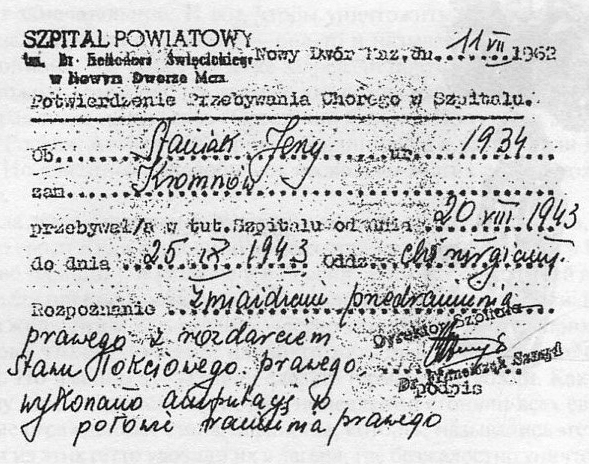 SZPITAL POWIATOWY
im. Dr Heliodora Święcickiego
w Nowym Dworze Maz.
Nowy Dwór Maz. dn. 11 VII 1962
Potwierdzenie Przebywania Chorego w Szpitalu.
Ob. Staniak Jerzy ur. 1934
zam. Kromnów
przebywał/a w tut. Szpitalu od dnia 20 VIII 1943
do dnia 25 IX 1943 Oddz. chirurgiczny.
Rozpoznanie zmiażdżenie przedramienia
prawego z rozdarciem
Stawu łokciowego prawego
wykonano amputację w
połowie ramienia prawego
Dyrektor Szpitala
Dr
podpis